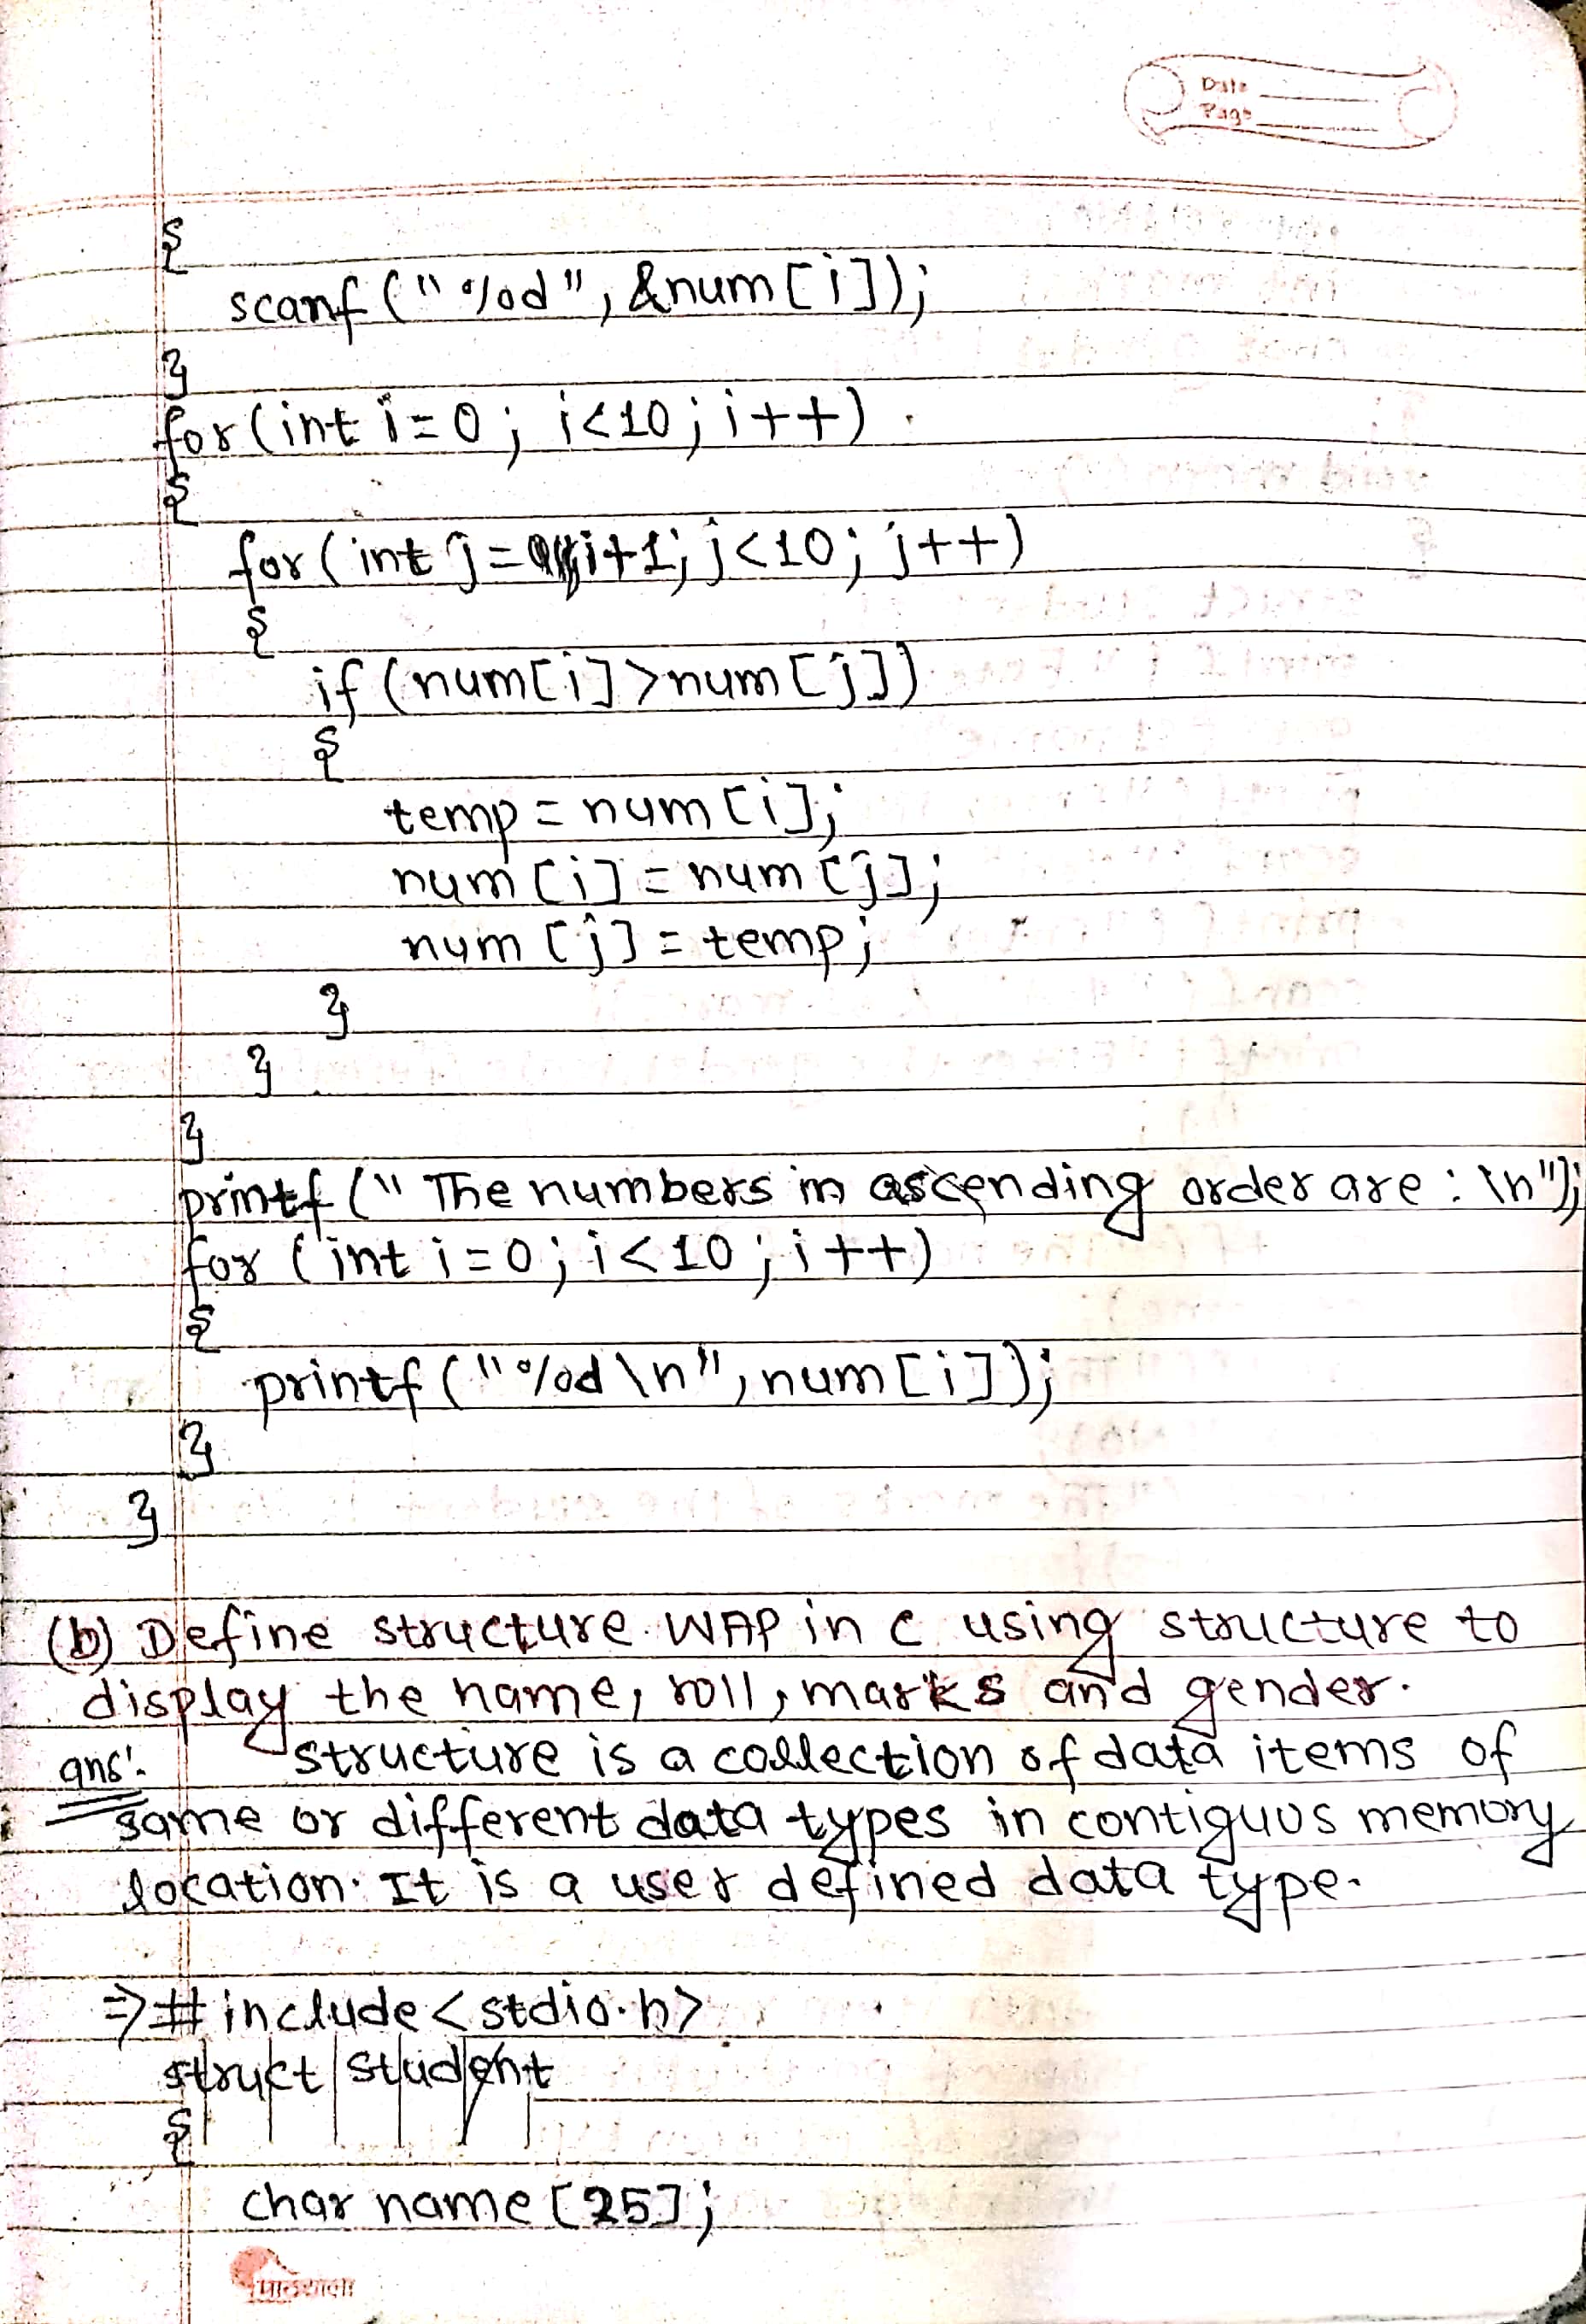 Date
Page
{
scanf ("%d", &num[i]);
}
for(int i=0; i<10; i++)
{
for(int j=i+1; j<10; j++)
{
if (num[i]>num[j])
{
temp = num[i];
num[i] = num[j];
num[j] = temp;
}
}
}
printf (" The numbers in ascending order are : \n");
for (int i=0; i<10; i++)
{
printf ("%d\n", num[i]);
}
}
(b) Define structure. WAP in c using structure to
display the name, roll, marks and gender.
ans: structure is a collection of data items of
same or different data types in contiguos memory
location. It is a user defined data type.
=> #include<stdio.h>
struct student
{
char name[25];
पाठशाला